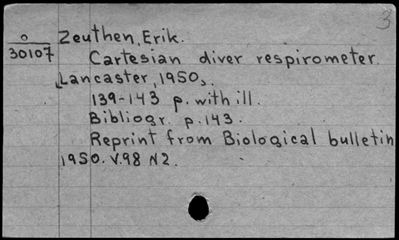 3
o Zeuthen, Erik.
30107 Cartesian diver respirometer.
Lancaster, 1950,.
139-143 p. with ill.
Bibliogr. p. 143.
Reprint from Biological bulletin
1950. V.98 N2.